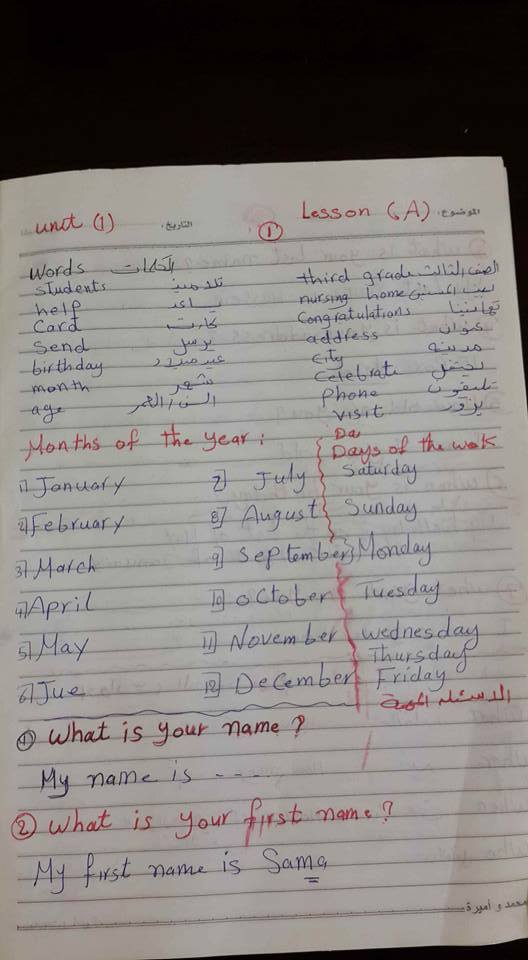 unit (1) التاريخ: Lesson (A) الموضوع:
①
Words الكلمات
students تلاميذ third grade الصف الثالث
help يساعد nursing home بيت المسنين
Card كارت Congratulations تهانينا
Send يرسل address عنوان
birthday عيد ميلاد city مدينه
month شهر Celebrate يحتفل
age السن / العمر Phone تليفون
visit يزور
Months of the year: Da
Days of the wek
1] January 7] July Saturday
2] February 8] August Sunday
3] March 9] September Monday
4] April 10] October Tuesday
5] May 11] November wednesday
Thursday
6] Jue 12] December Friday
الاسئله المهمة
① What is your name?
My name is ----
② What is your first name?
My first name is Sama
محمد و اميرة